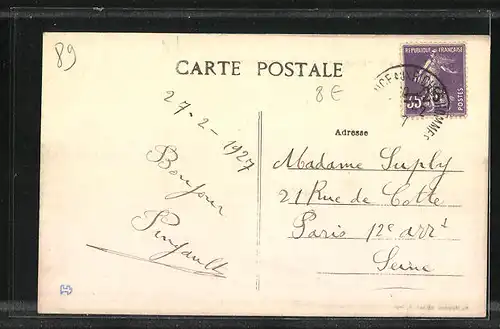 89
CARTE POSTALE
8 €
REPUBLIQUE FRANÇAISE
35c
POSTES
27-2-1927
Bonjour
Adresse
Madame Suply
21 Rue de Cotte
Paris 12e arrt
Seine